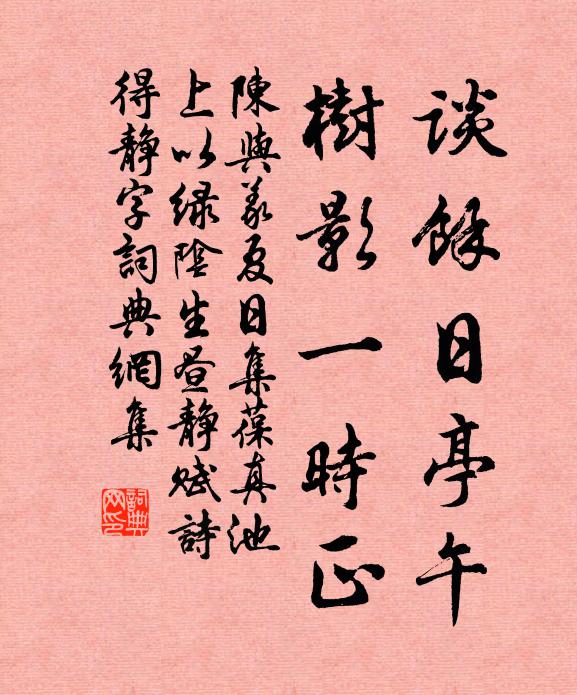 談餘日亭午
樹影一時正
陳與義夏日集葆真池
上以緑陰生晝靜賦詩
得靜字詞典網集
詞典网印